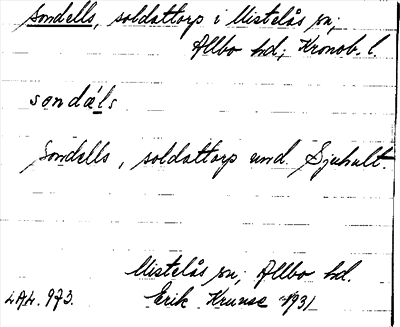 Sondells, soldattorp i Mistelås sn;
Allbo hd; Kronob. l.
sondæ̀ls
Sondells, soldattorp und. Sjuhult.
Mistelås sn; Allbo hd.
LAL. 973. Erik Kruuse 1931